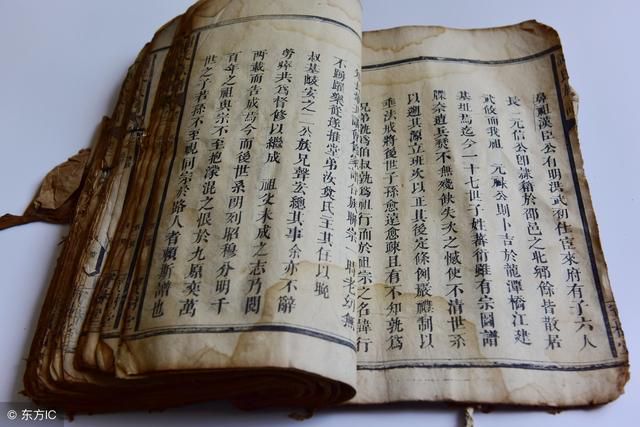 鼻祖漢臣公有明洪武初仕宦來府有子六人
長 元信公即隸籍於邵邑之北鄉餘皆散居
武攸而我祖 元祿公則卜吉於龍潭橋江建
基址焉迄今一十七世子姓蕃衍雖有宗圖譜
牒奈遭兵燹不無殘缺失火之憾使不清世系
以遡其源立班次以正其後定條例嚴禮制以
垂法戒將後世子孫愈遠愈疎且有不知孰為
兄弟孰為伯叔孰為祖行而於祖宗之名諱行
不踴躍樂從遂推堂弟汝
主其任以晚
叔基
安之二公族兄聲
總其事余亦不辭
勞瘁共為督修以繼成 祖父未成之志乃閱
兩載而告成焉今而後世系朗列昭穆分明千
百年之祖與宗不至抱濛混之恨於九原奕萬
世之子若孫不至視同宗於路人者賴斯譜也
© 东方IC